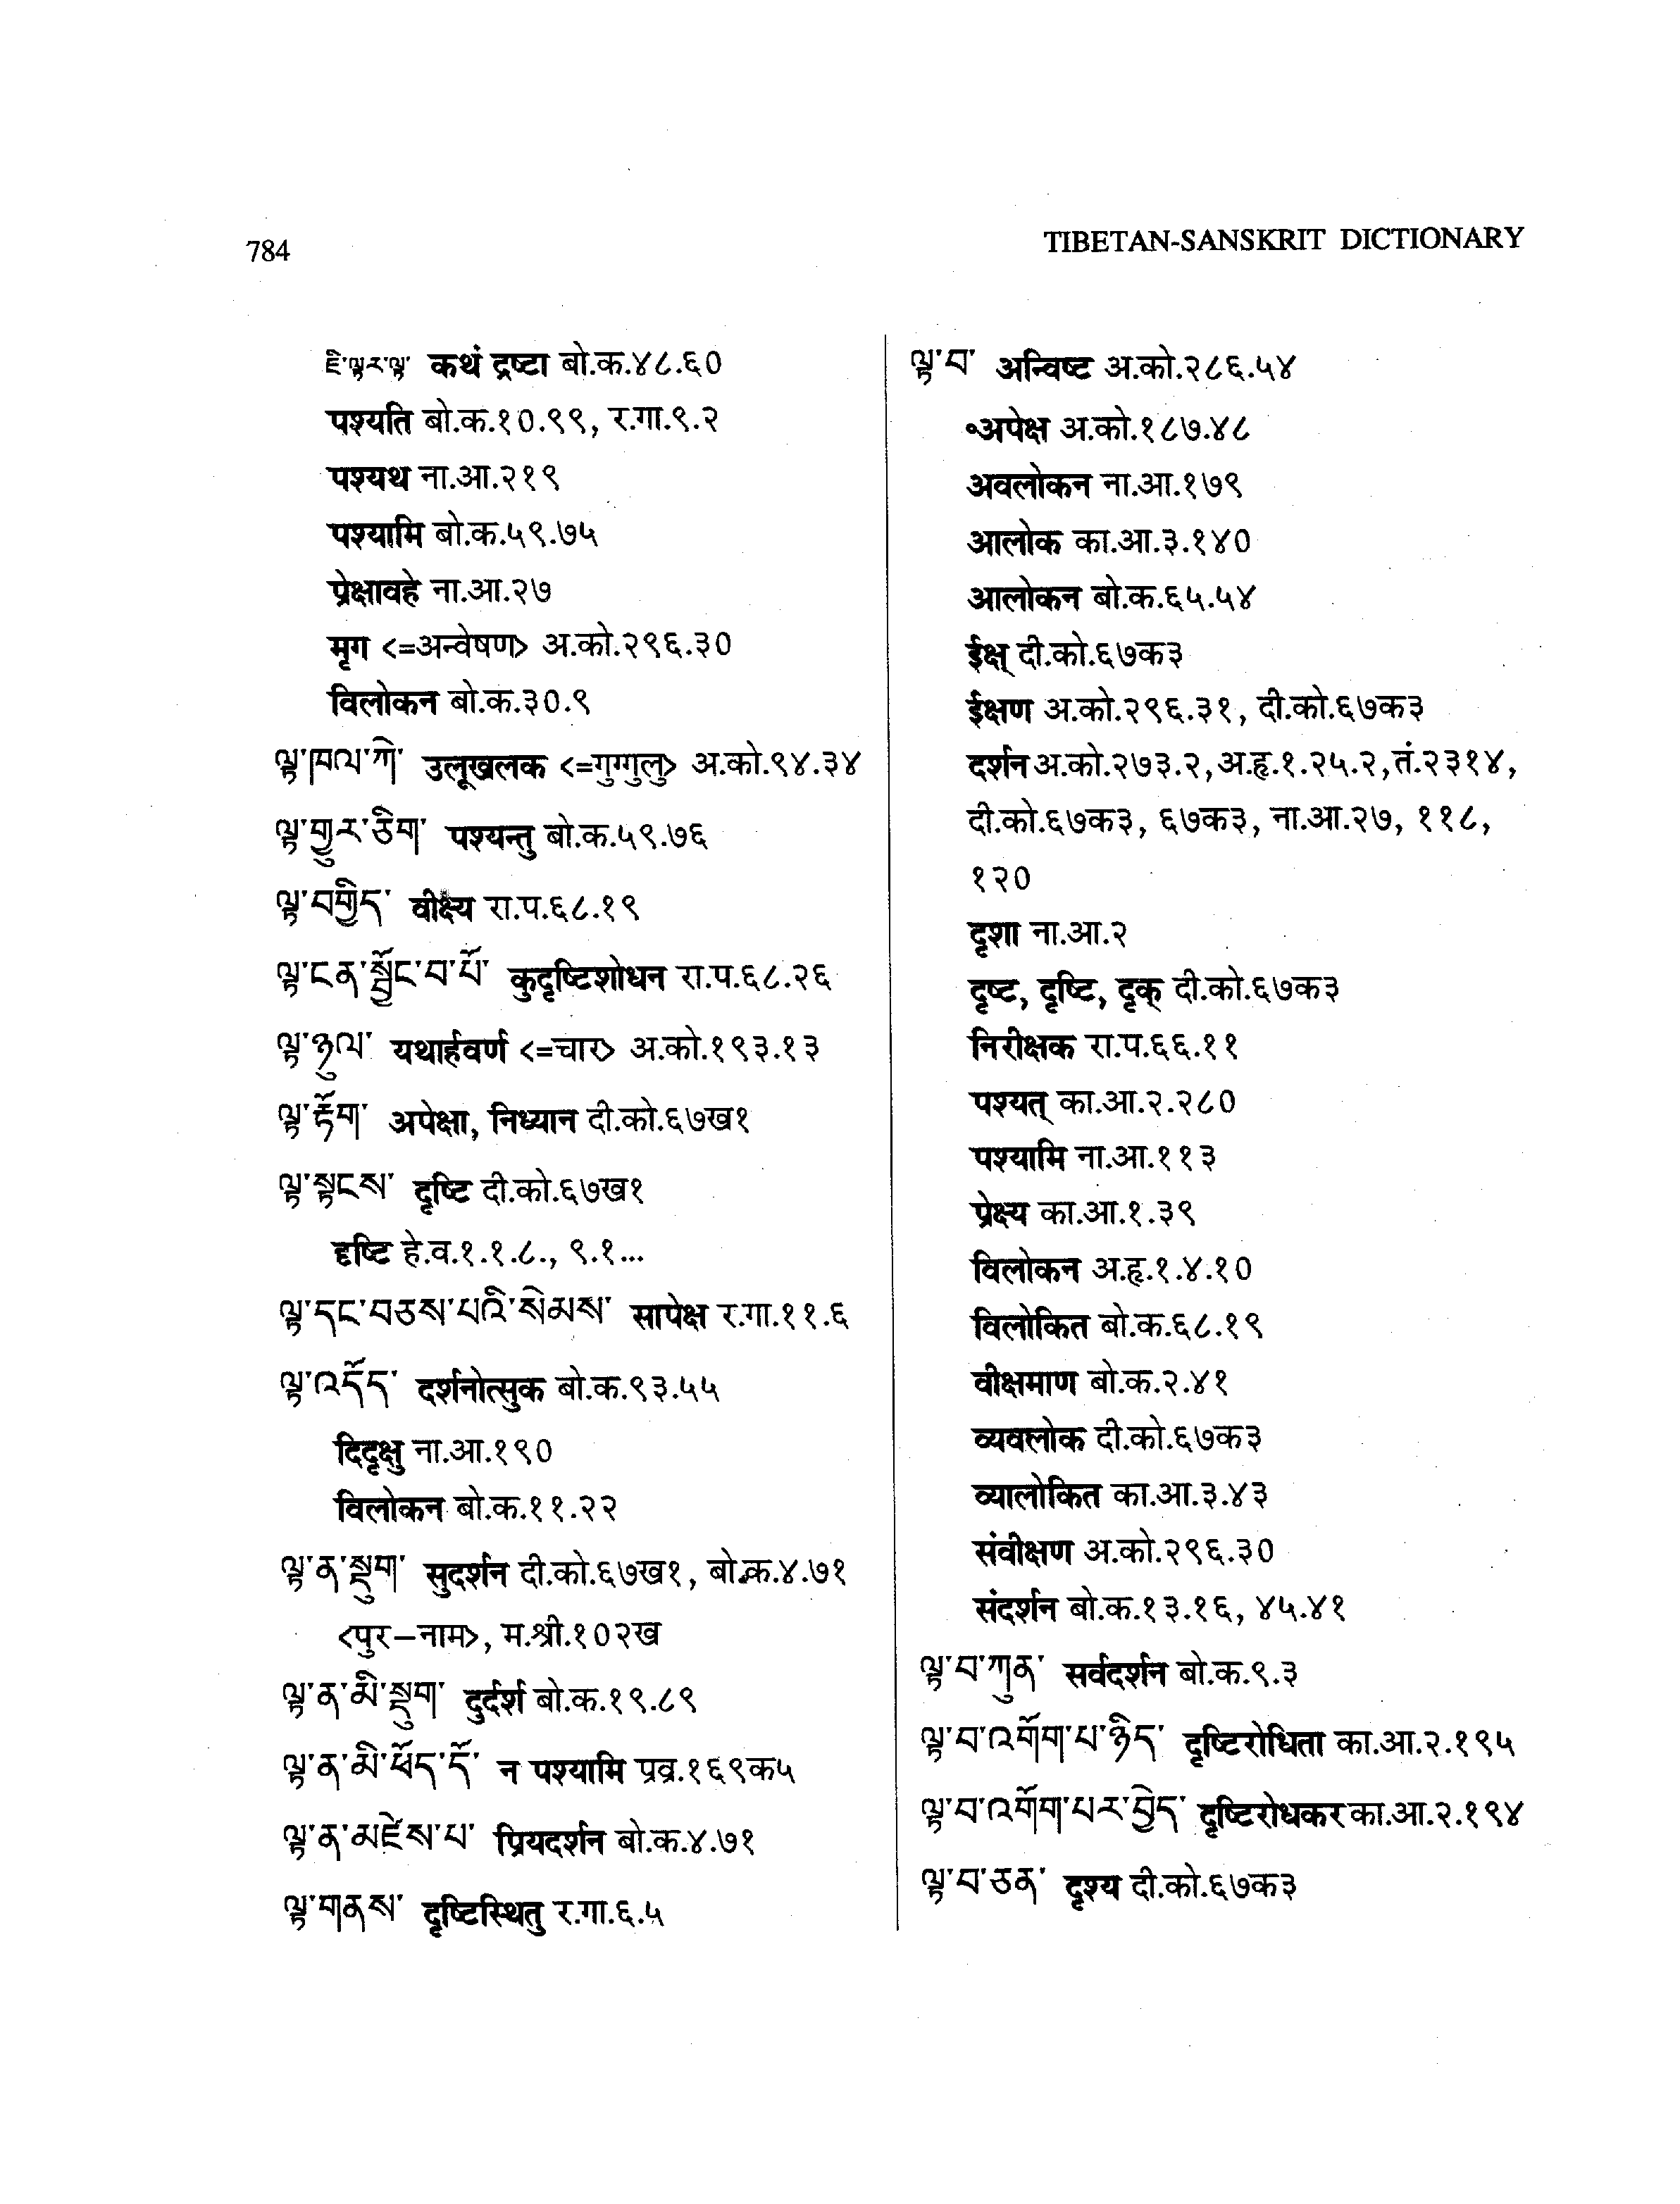 784
TIBETAN-SANSKRIT DICTIONARY
ཇི་ལྟར་ལྟ་ कथं द्रष्टा बो.क.४८.६०
पश्यति बो.क.१०.९९, र.गा.९.२
पश्यथ ना.आ.२१९
पश्यामि बो.क.५९.७५
प्रेक्षावहे ना.आ.२७
मृग <=अन्वेषण> अ.को.२९६.३०
विलोकन बो.क.३०.९
ལྟ་ཁལ་ཀེ་ उलूखलक <=गुग्गुलु> अ.को.९४.३४
ལྟ་གྱུར་ཅིག་ पश्यन्तु बो.क.५९.७६
ལྟ་བགྱིད་ वीक्ष्य रा.प.६८.१९
ལྟ་ངན་སྦྱོང་བ་པོ་ कुदृष्टिशोधन रा.प.६८.२६
ལྟ་ཉུལ་ यथार्हवर्ण <=चार> अ.को.१९३.१३
ལྟ་རྟོག་ अपेक्षा, निध्यान दी.को.६७ख१
ལྟ་སྟངས་ दृष्टि दी.को.६७ख१
दृष्टि हे.व.१.१.८., ९.१...
ལྟ་དང་བཅས་པའི་སེམས་ सापेक्ष र.गा.११.६
ལྟ་འདོད་ दर्शनोत्सुक बो.क.९३.५५
दिदृक्षु ना.आ.१९०
विलोकन बो.क.११.२२
ལྟ་ན་སྡུག་ सुदर्शन दी.को.६७ख१, बो.क.४.७१
<पुर–नाम>, म.श्री.१०२ख
ལྟ་ན་མི་སྡུག་ दुर्दर्श बो.क.१९.८९
ལྟ་ན་མི་ཕོད་དོ་ न पश्यामि प्रव्र.१६९क५
ལྟ་ན་མཛེས་པ་ प्रियदर्शन बो.क.४.७१
ལྟ་གནས་ दृष्टिस्थितु र.गा.६.५
ལྟ་བ་ अन्विष्ट अ.को.२८६.५४
॰अपेक्ष अ.को.१८७.४८
अवलोकन ना.आ.१७९
आलोक का.आ.३.१४०
आलोकन बो.क.६५.५४
ईक्ष् दी.को.६७क३
ईक्षण अ.को.२९६.३१, दी.को.६७क३
दर्शन अ.को.२७३.२, अ.हृ.१.२५.२, तं.२३१४,
दी.को.६७क३, ६७क३, ना.आ.२७, ११८,
१२०
दृशा ना.आ.२
दृष्ट, दृष्टि, दृक् दी.को.६७क३
निरीक्षक रा.प.६६.११
पश्यत् का.आ.२.२८०
पश्यामि ना.आ.११३
प्रेक्ष्य का.आ.१.३९
विलोकन अ.हृ.१.४.१०
विलोकित बो.क.६८.१९
वीक्षमाण बो.क.२.४१
व्यवलोक दी.को.६७क३
व्यालोकित का.आ.३.४३
संवीक्षण अ.को.२९६.३०
संदर्शन बो.क.१३.१६, ४५.४१
ལྟ་བ་ཀུན་ सर्वदर्शन बो.क.९.३
ལྟ་བ་འགོག་པ་ཉིད་ दृष्टिरोधिता का.आ.२.१९५
ལྟ་བ་འགོག་པར་བྱེད་ दृष्टिरोधकर का.आ.२.१९४
ལྟ་བ་ཅན་ दृश्य दी.को.६७क३